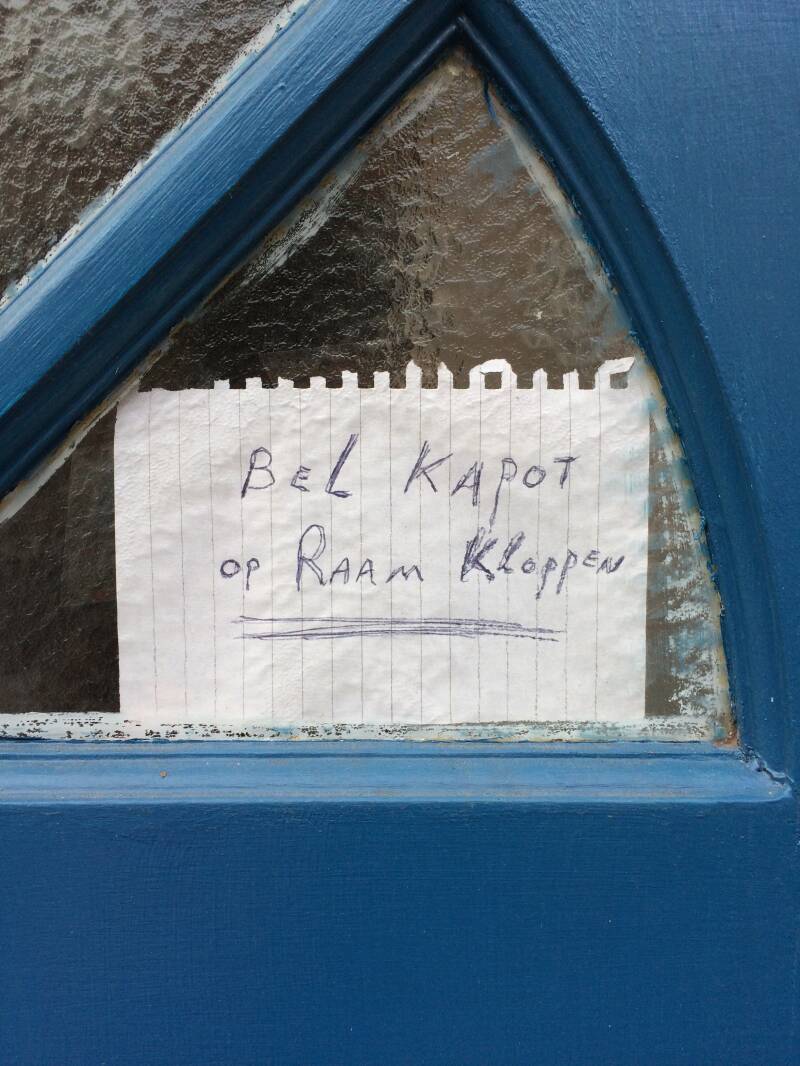 BEL KAPOT
op RAAM Kloppen